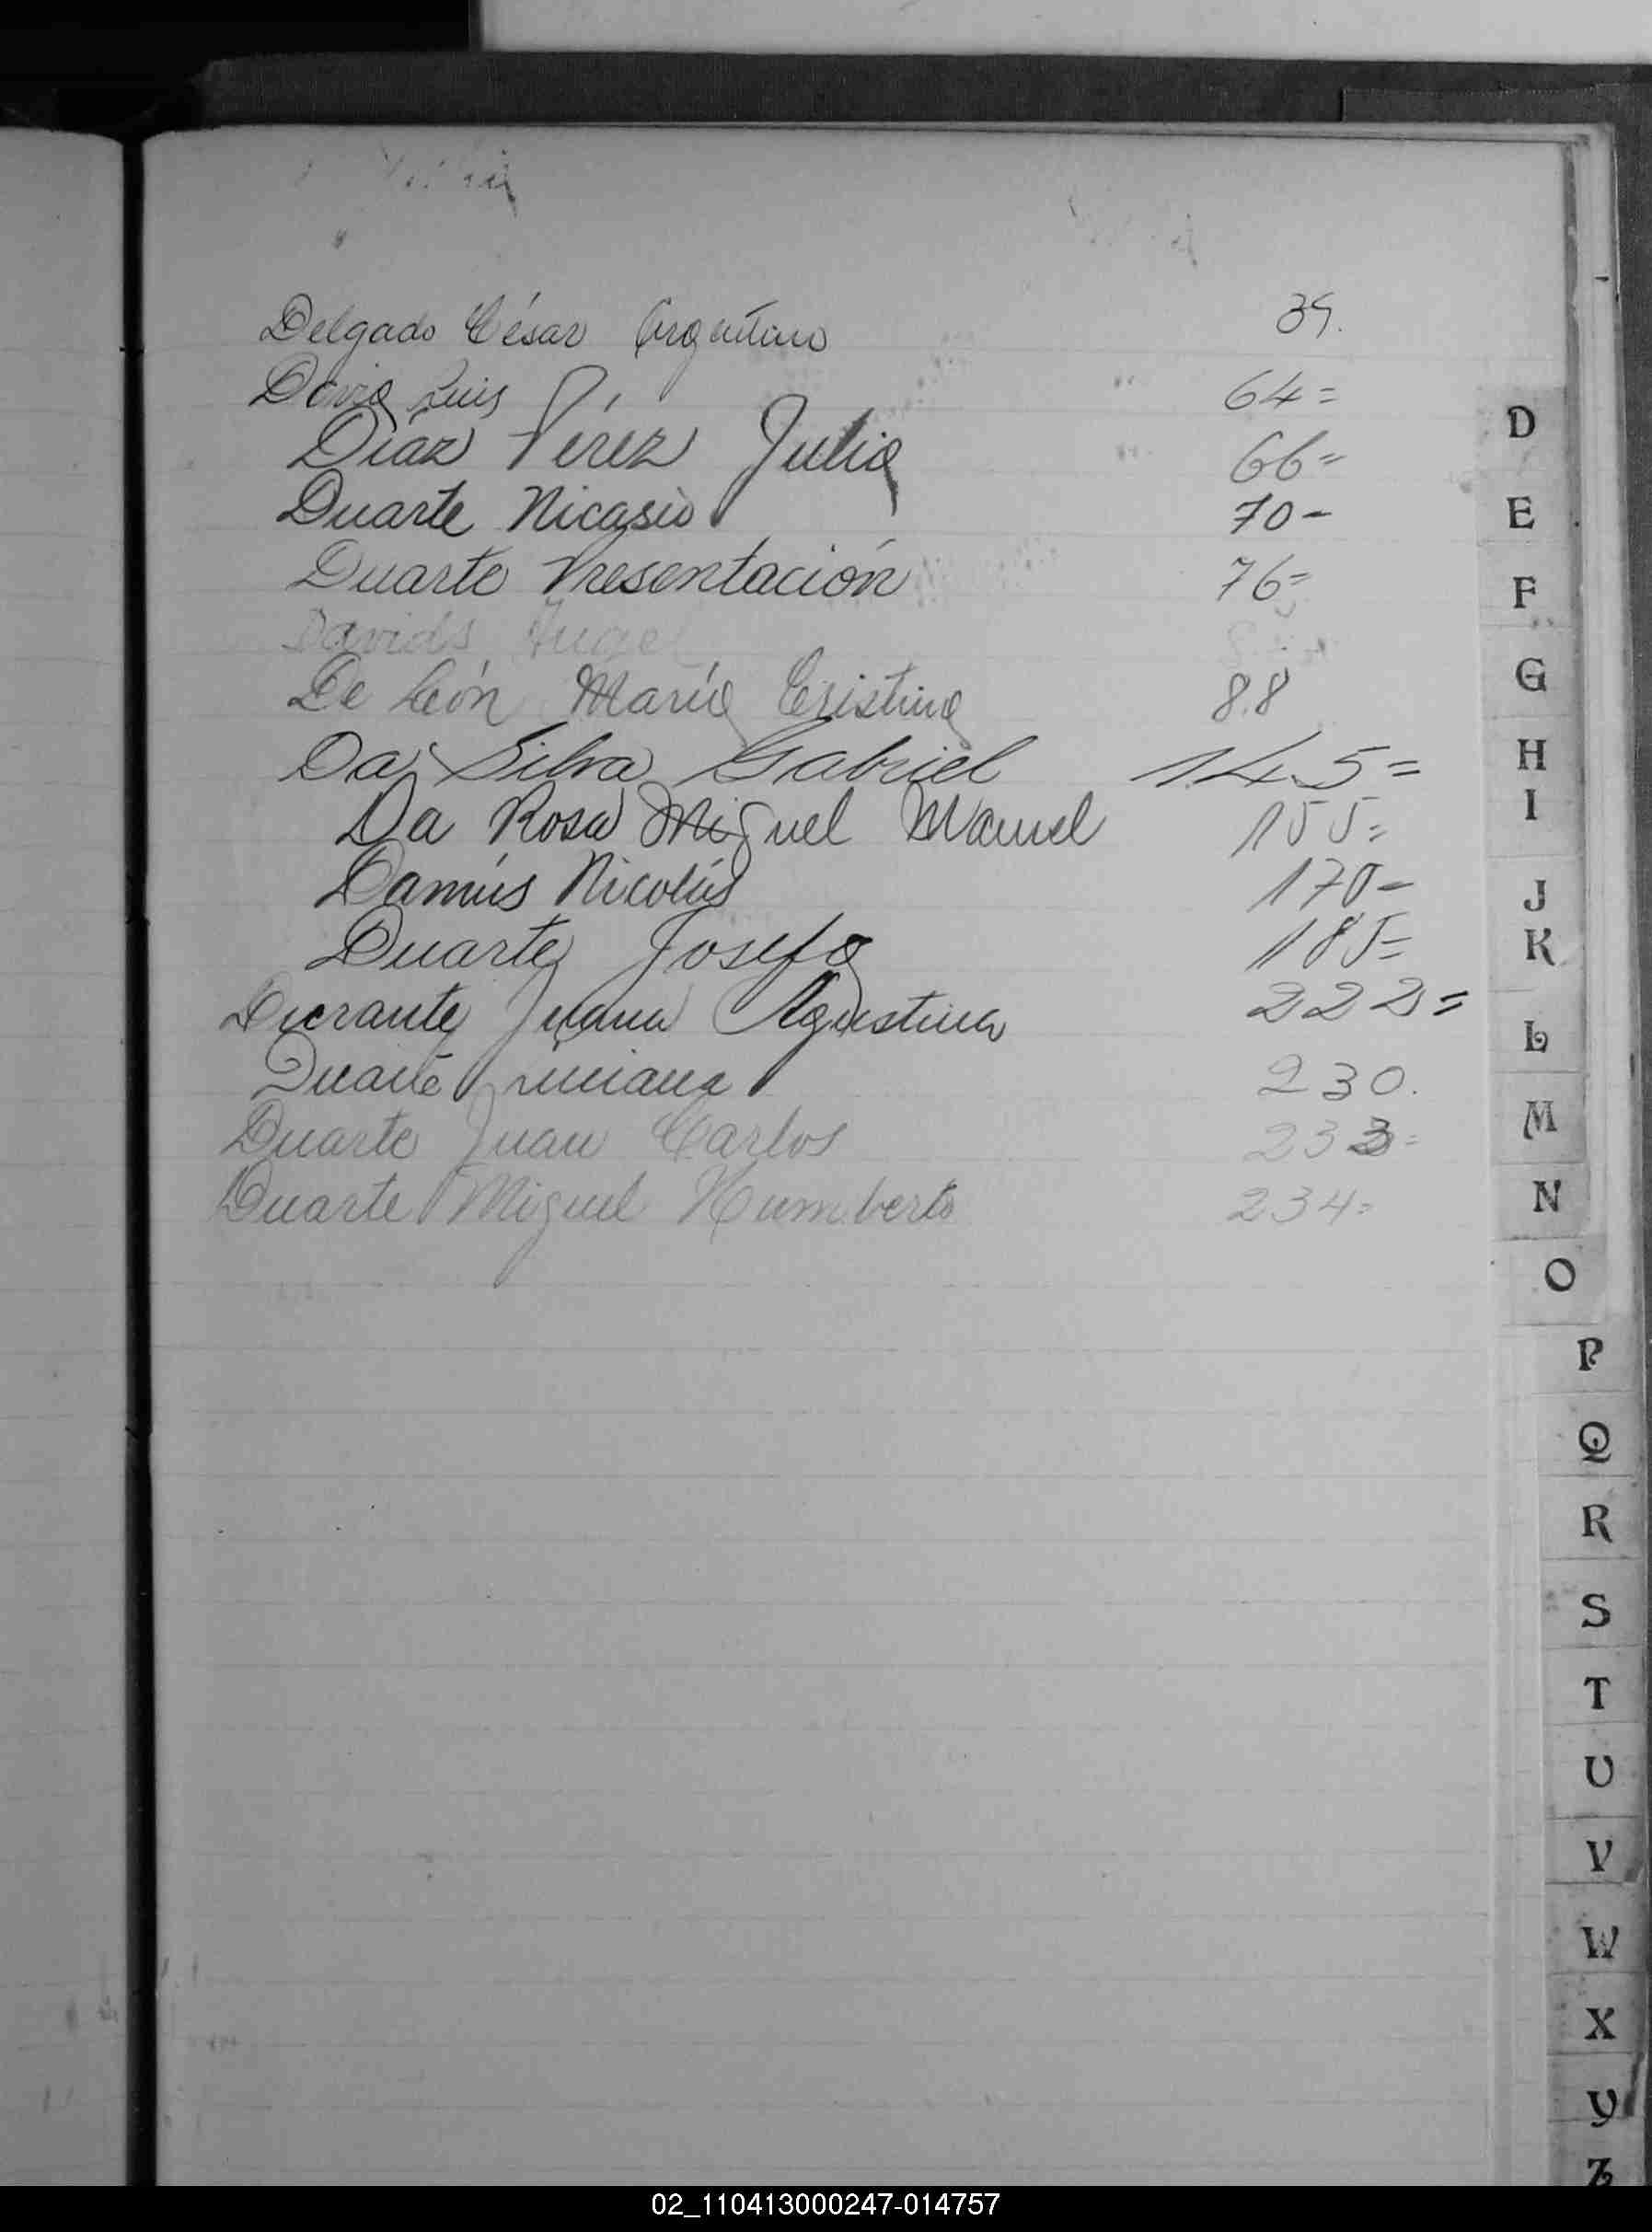 Delgado César Argentino 39.
Luis 64=
Díaz Pérez Julia 66=
Duarte Nicasio 70-
Duarte Presentación 76=
Davids Angel
De León María Cristina 88
Da Silva Gabriel 145=
Da Rosa Miguel Manuel 155=
Damús Nicolás 170-
Duarte Josefa 185=
Durante Juana Agustina 222=
Duarte Luciana 230.
Duarte Juan Carlos 233=
Duarte Miguel Humberto 234=
D
E
F
G
H
I
J
K
L
M
N
O
P
Q
R
S
T
U
V
W
X
Y
Z
02_110413000247-014757